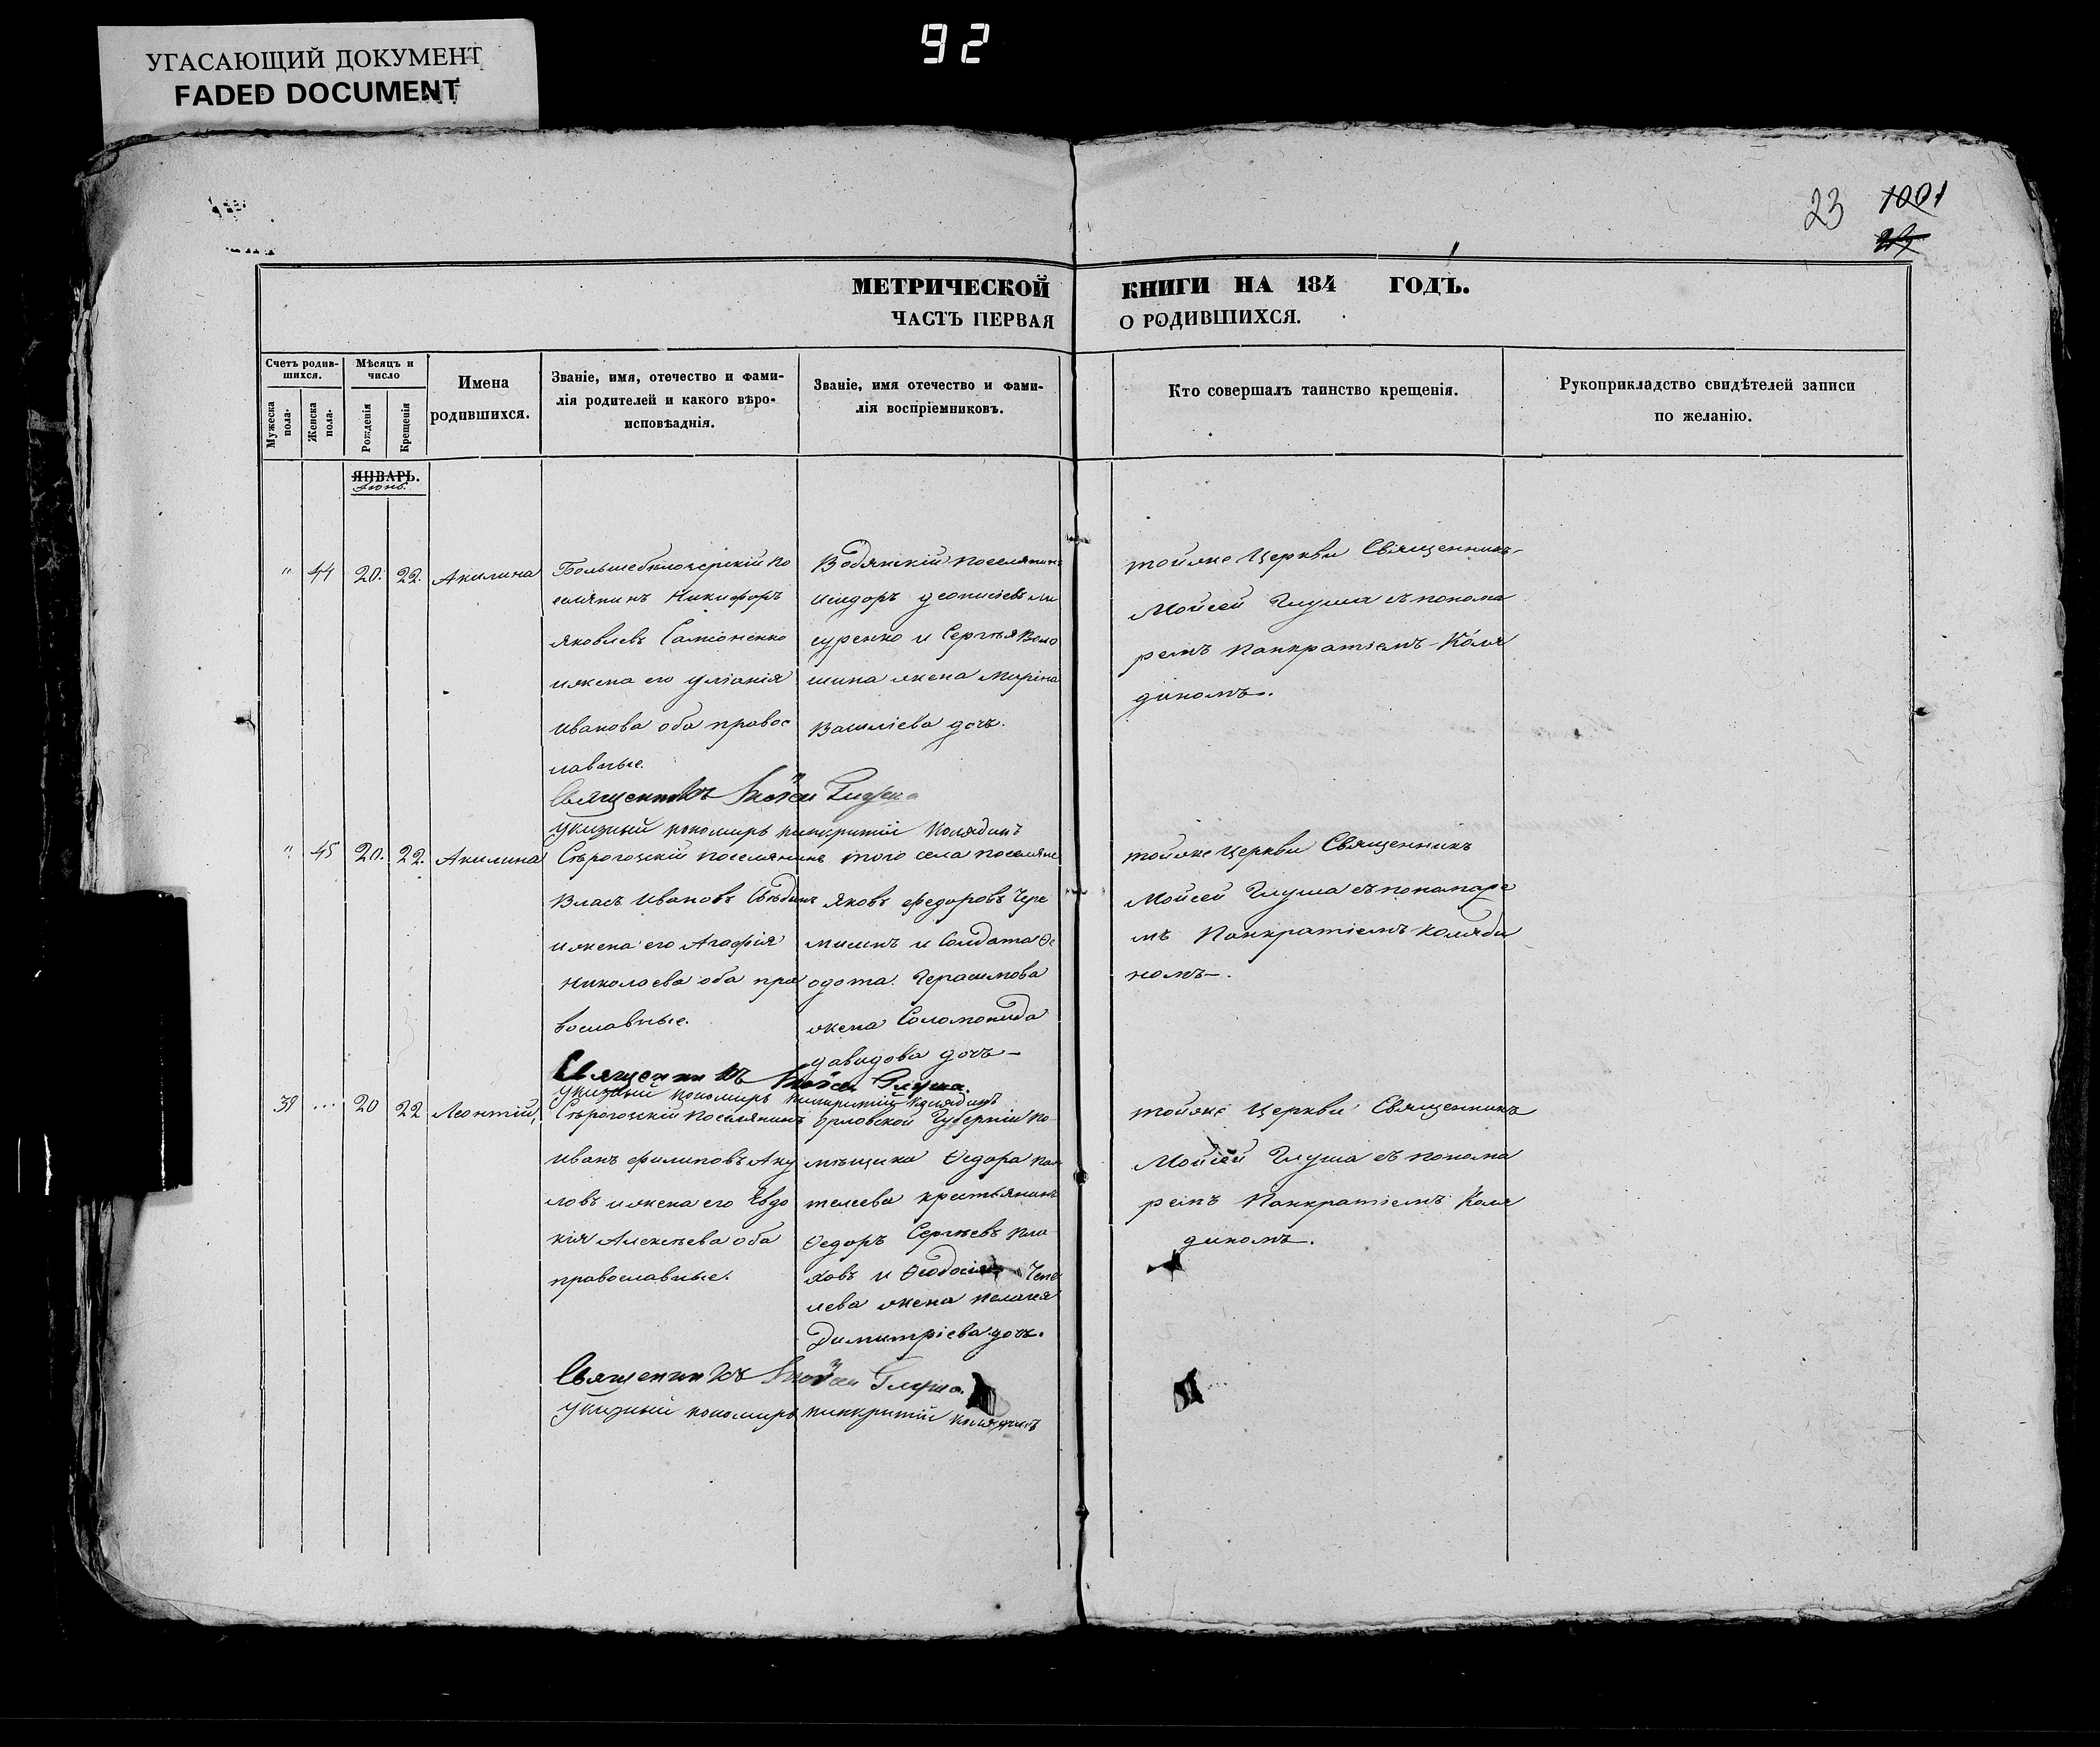 УГАСАЮЩИЙ ДОКУМЕНТ
FADED DOCUMENT
92
23
1001
МЕТРИЧЕСКОЙ КНИГИ НА 184 ГОДЪ.
ЧАСТЬ ПЕРВАЯ О РОДИВШИХСЯ.
Счетъ родив-
шихся.
Мужеска
пола.
Женска
пола.
Мѣсяцъ и
число
Рожденія
Крещенія
Имена
родившихся.
Званіе, имя, отечество и фами-
лія родителей и какого вѣро-
исповѣаднія.
Званіе, имя отечество и фами-
лія воспріемниковъ.
Кто совершалъ таинство крещенія.
Рукоприкладство свидѣтелей записи
по желанію.
ЯНВАРЬ.
Іюнь.
" 44 20. 22. Акилина
Большебѣлозерскій по
селянинъ Никифоръ
Яковлевъ Самоненко
и жена его Уліанія
Иванова оба правос
лавные.
Водянскій поселянинъ
Исидоръ Деонисіевъ Ми
суренко и Сергѣя Воло
шина жена Марина
Василіева дочь.
тойже Церкви Священникъ
Мойсей Глуша съ понома
ремъ Панкратіемъ Коля
диномъ.
Священникъ Мойсей Глуша
Указный пономарь Панкратій Колядинъ
" 45 20. 22. Акилина
Сѣрогозскій поселянинъ
Власъ Ивановъ
и жена его Агафія
Николаева оба пра
вославные.
того села поселяне
Яковъ Федоровъ Чере
мисинъ и Солдата Ѳе
одота Герасимова
жена Соломонида
Давидова дочь
тойже Церкви Священникъ
Мойсей Глуша съ пономаре
мъ Панкратіемъ Коляди
номъ.
Священникъ Мойсей Глуша.
Указный пономарь Панкратій Колядинъ
39 ... 20 22 Леонтій,
Сѣрогозскій поселянинъ
Иванъ Филиповъ Аку
ловъ и жена его Евдо
кія Алексѣева оба
православные.
Орловской Губерніи по
мѣщика Ѳедора Пан
телеева крестьянинъ
Ѳедоръ Сергѣевъ
ховъ и Ѳеодосія Чепе
лева жена Пелагея
Димитріева дочь.
тойже Церкви Священникъ
Мойсей Глуша съ понома
ремъ Панкратіемъ Коля
диномъ.
Священникъ Мойсей Глуша.
Указный пономарь Панкратій Колядинъ